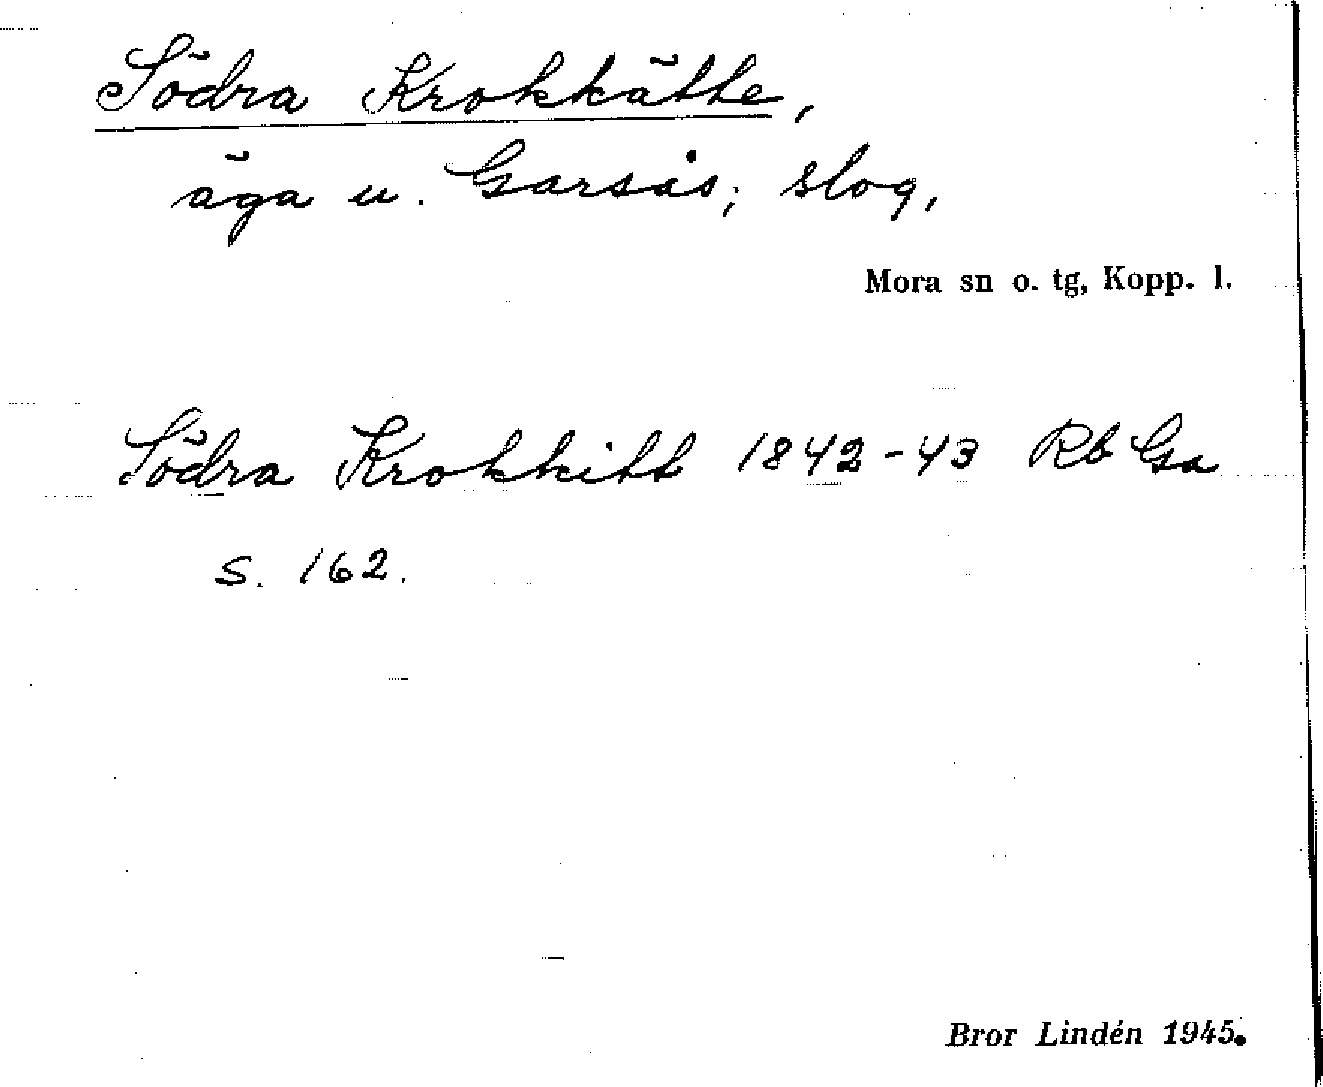 Södra Krokkätte,
äga u. Garsås; slog,
Mora sn o. tg, Kopp. l.
Södra Krokkitt 1842-43 Rb Ga
s. 162.
Bror Lindén 1945.